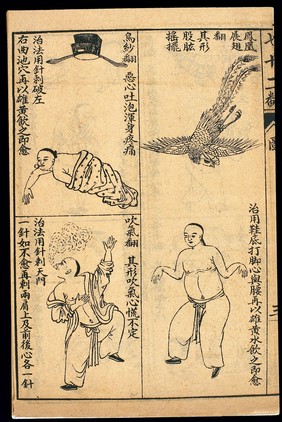 七十二翻
圖
鳳凰
展翅
翻
其形
股肱
搖擺
治用鞋底打脚心與腰再以雄黃水飲之即愈
烏紗翻
惡心吐泡渾身疼痛
治法用針刺破左
右曲池穴再以雄黃飲之即愈
吹氣翻
其形吹氣心慌不定
治法用針刺天門
一針如不愈再刺兩肩上及前後心各一針